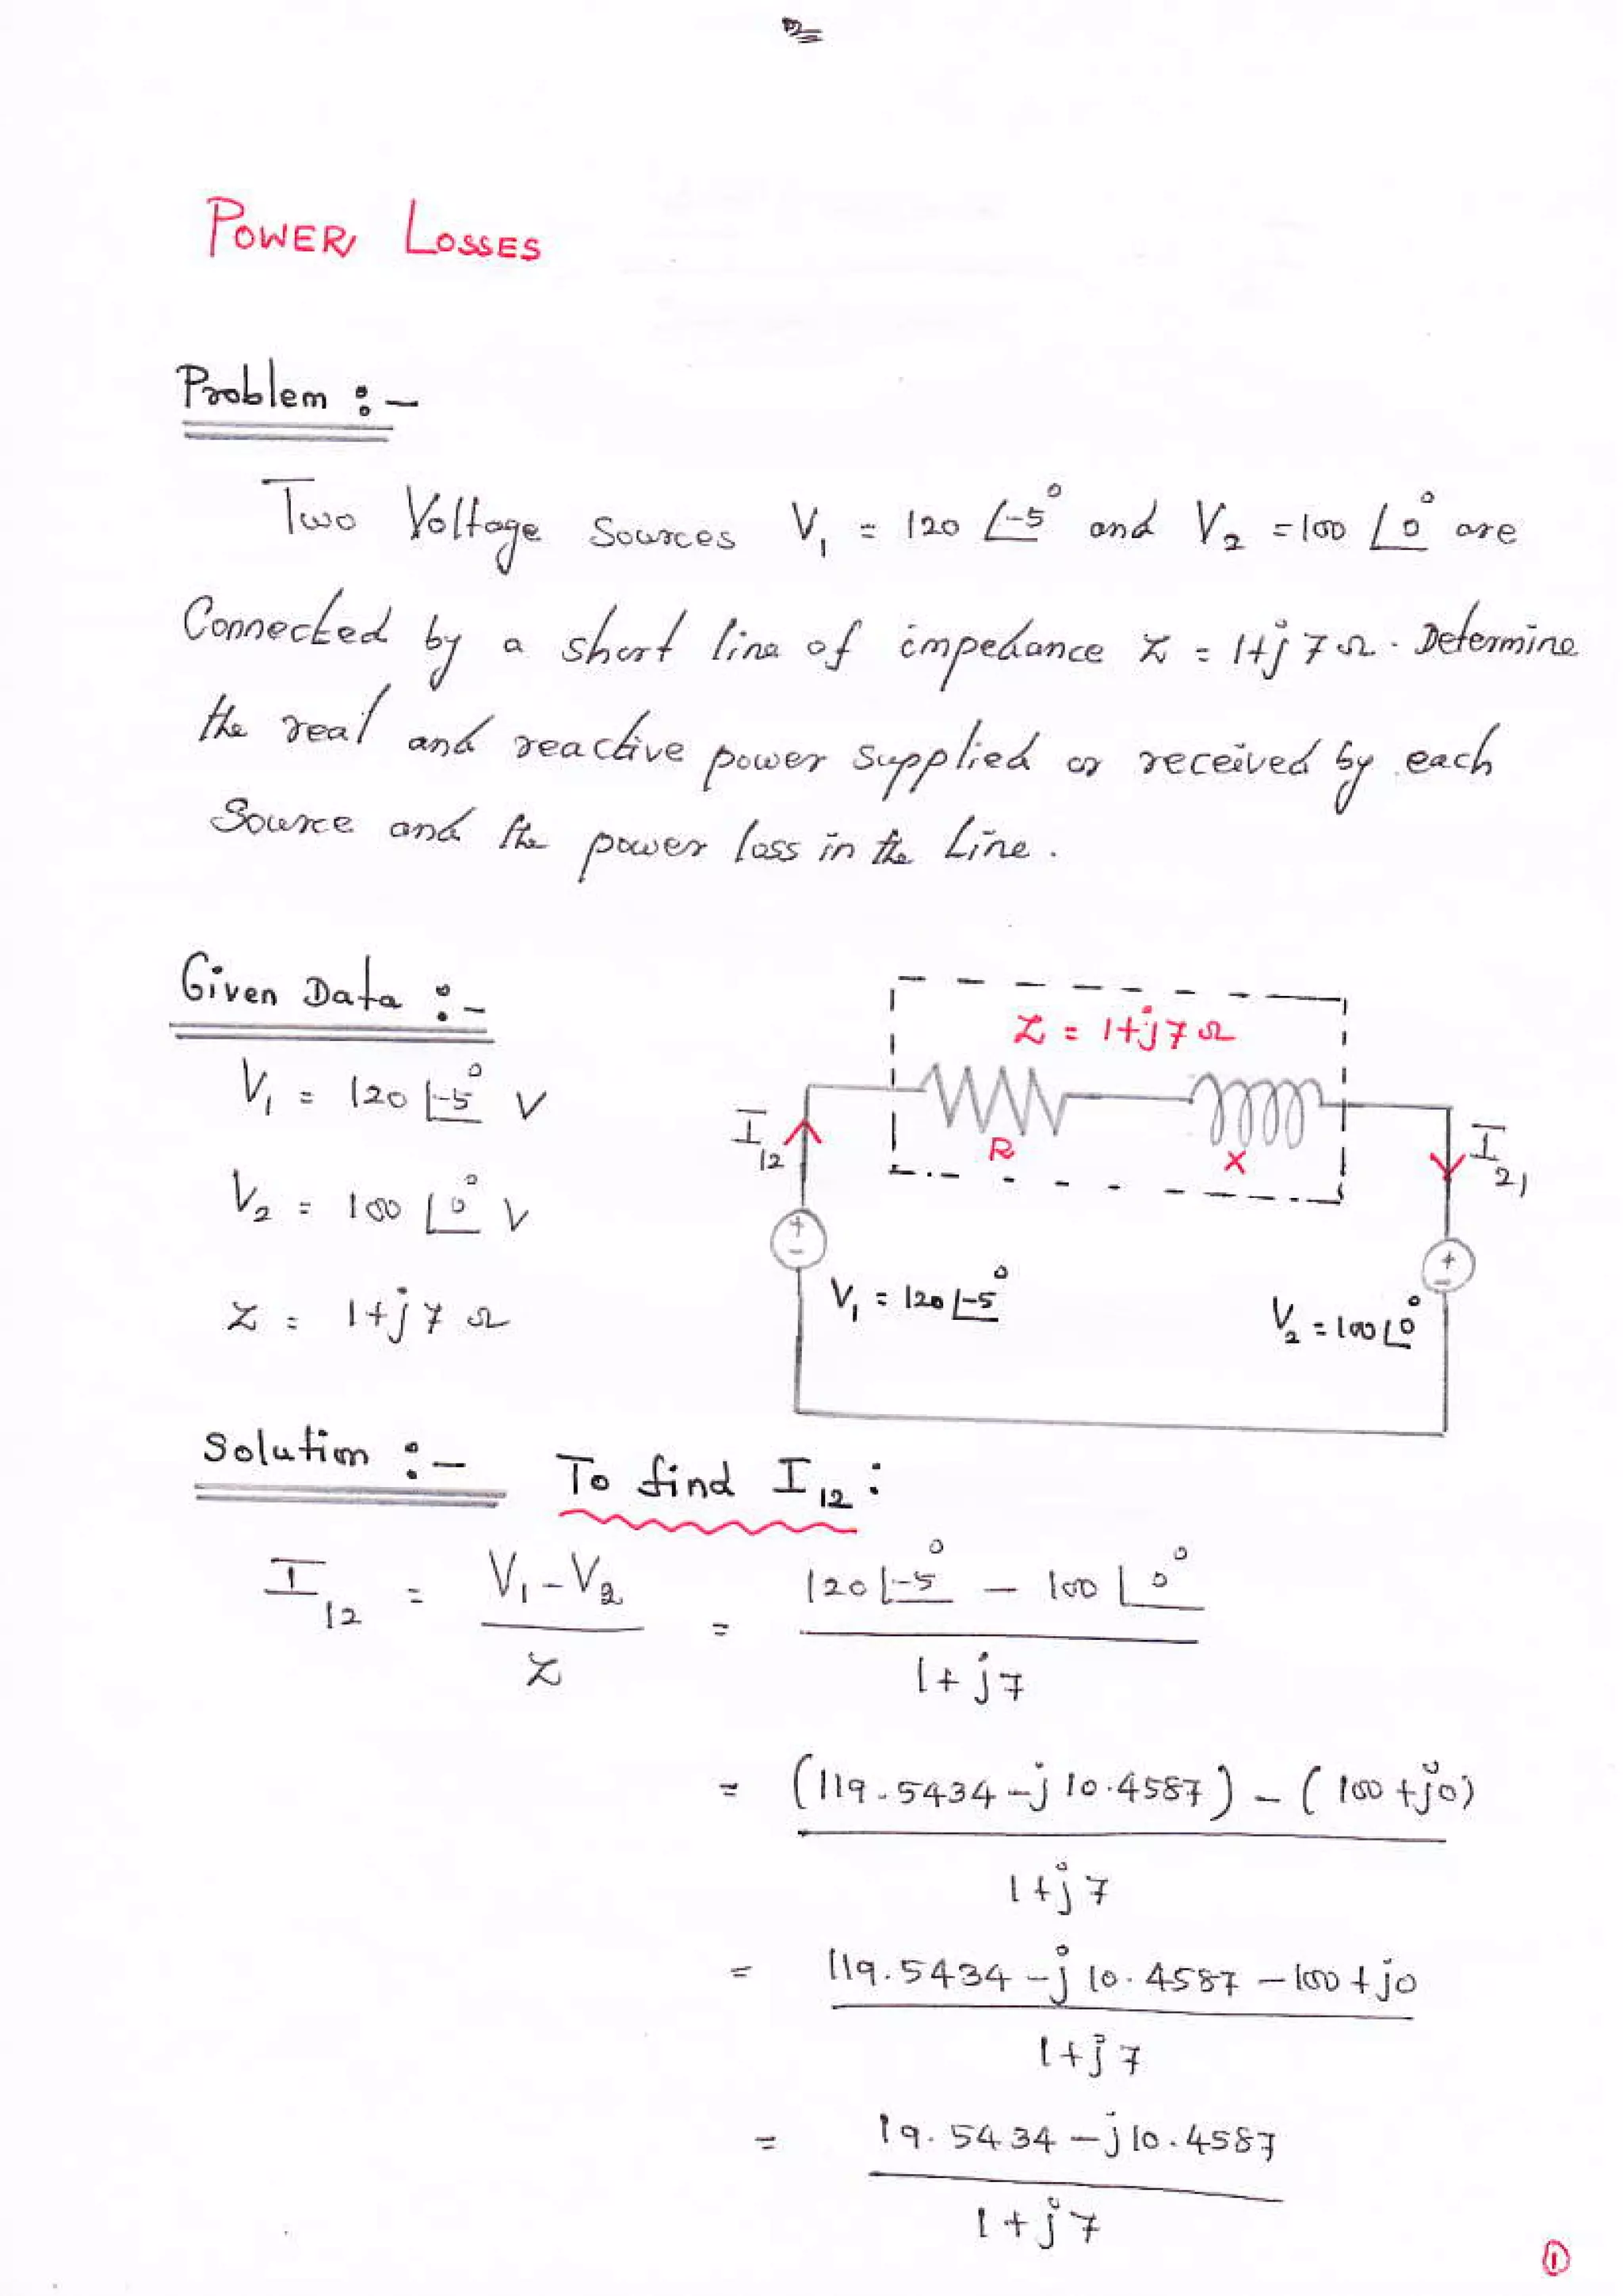 POWER LOSSES
Problem :-
Two Voltage Sources V₁ = 120 ∠-5° and V₂ = 100 ∠0° are
Connected by a short line of impedance Z = 1+j7Ω. Determine
the real and reactive power supplied or received by each
Source and the power loss in the Line.
Given Data :-
V₁ = 120 ∠-5° V
V₂ = 100 ∠0° V
Z = 1+j7 Ω
Z = 1+j7Ω
R
X
I₁₂
I₂₁
+
-
+
-
V₁ = 120 ∠-5°
V₂ = 100 ∠0°
Solution :- To find I₁₂ :
I₁₂ = V₁-V₂ / Z = 120 ∠-5° - 100 ∠0° / 1+j7
= (119.5434 -j 10.4587) - (100 +j0) / 1+j7
= 119.5434 -j 10.4587 -100 + j0 / 1+j7
= 19.5434 -j10.4587 / 1+j7
1